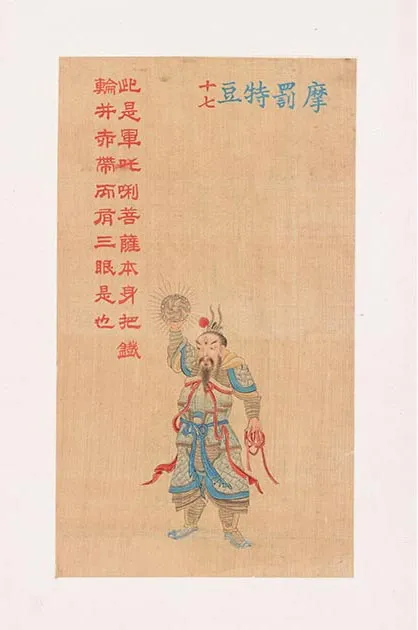 摩罰特豆
十七
此是軍吒唎菩薩本身把鐵
輪并赤帶两肩三眼是也